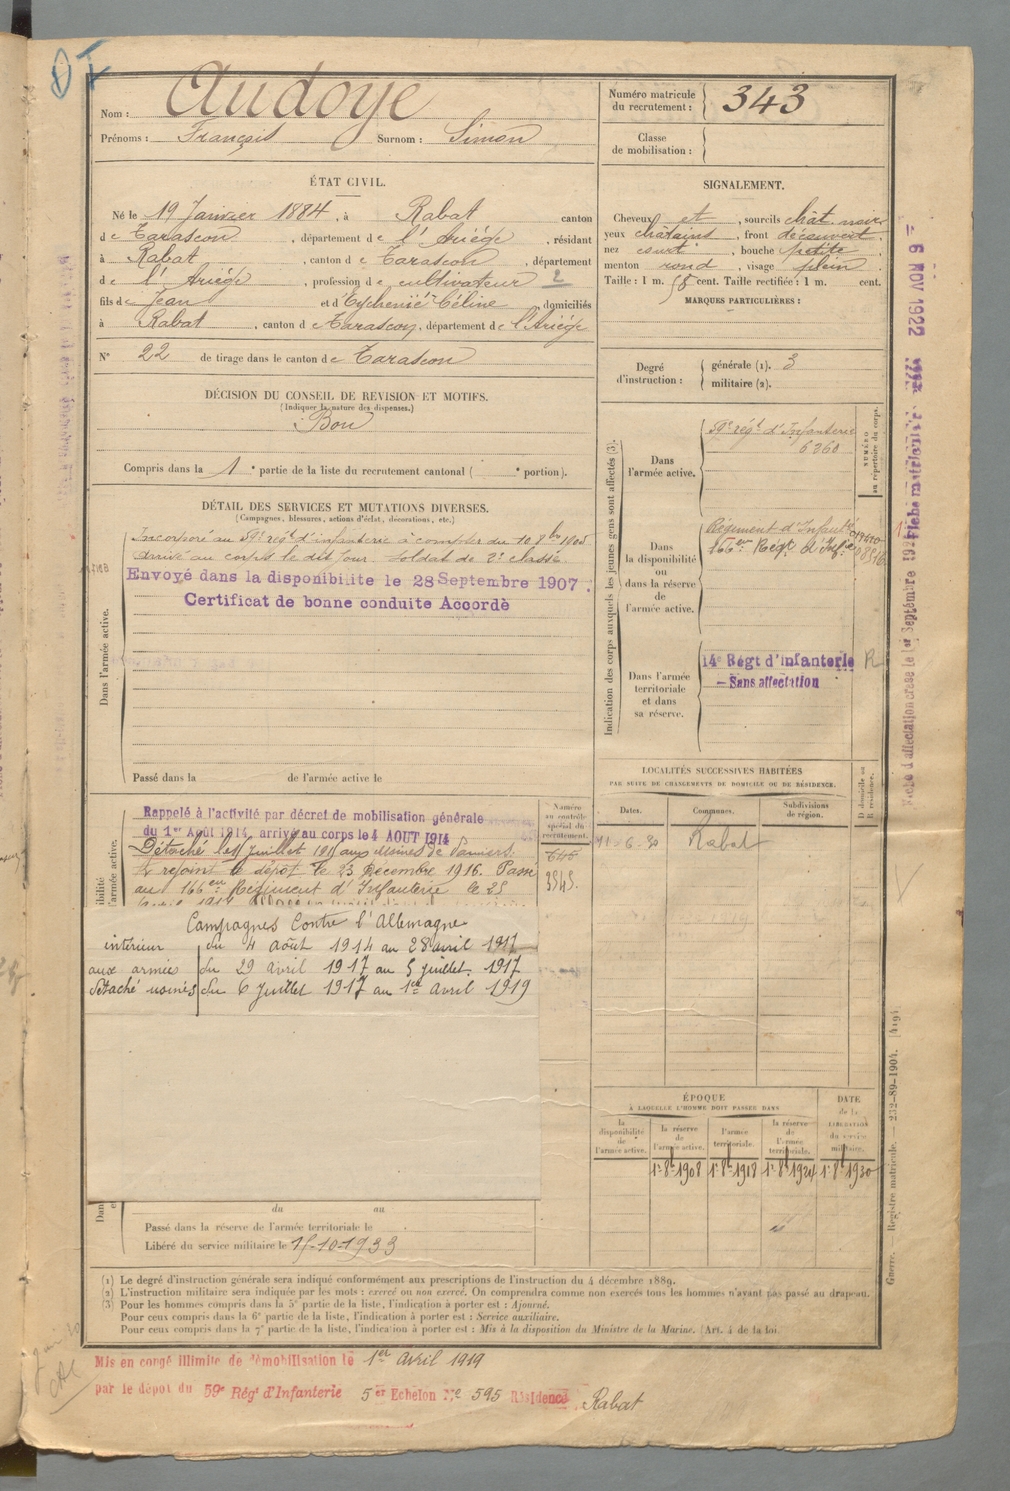 Nom : Audoye
Prénoms : François Surnom : Simon
Numéro matricule du recrutement : 343
Classe de mobilisation :
ÉTAT CIVIL.
Né le 19 Janvier 1884, à Rabat canton
de Tarascon, département de l'Ariége, résidant
à Rabat, canton de Tarascon, département
de l'Ariége, profession de cultivateur 2
fils de Jean et d'Eychenié Céline, domiciliés
à Rabat, canton de Tarascon, département de l'Ariége
N° 22 de tirage dans le canton de Tarascon
SIGNALEMENT.
Cheveux et, sourcils chât. noir
yeux châtains, front découvert
nez court, bouche petite
menton rond, visage plein
Taille : 1 m. 58 cent. Taille rectifiée : 1 m. cent.
MARQUES PARTICULIÈRES :
Degré d'instruction : générale (1). 3
militaire (2).
DÉCISION DU CONSEIL DE REVISION ET MOTIFS.
(Indiquer la nature des dispenses.)
Bon
Compris dans la 1e partie de la liste du recrutement cantonal ( e portion).
DÉTAIL DES SERVICES ET MUTATIONS DIVERSES.
(Campagnes, blessures, actions d'éclat, décorations, etc.)
Dans l'armée active.
Incorporé au 59e régt d'infanterie à compter du 10 8bre 1905
arrivé au corps le dit jour soldat de 2e classe.
Envoyé dans la disponibilité le 28 Septembre 1907.
Certificat de bonne conduite Accordè
Passé dans la de l'armée active le
Indication des corps auxquels les jeunes gens sont affectés (3).
NUMÉRO au répertoire du corps.
Dans l'armée active.
59e régt d'Infanterie
6360
Dans la disponibilité ou dans la réserve de l'armée active.
Régiment d'Infant
166eme Régt d'Infie
Dans l'armée territoriale et dans sa réserve.
14e Régt d'infanterie R
– Sans affectation
Rappelé à l'activité par décret de mobilisation générale
du 1er Août 1914, arrivé au corps le 4 AOUT 1914
Détaché le juillet aux usines de Pamiers.
rejoint le dépôt le 23 Décembre 1916. Passé
au 166eme Régiment d'Infanterie le 25
Numéro au contrôle spécial du recrutement.
3545.
Campagnes Contre l'Allemagne
intérieur du 4 août 1914 au 28 avril 1917
aux armées du 29 avril 1917 au 5 juillet 1917
détaché usines du 6 Juillet 1917 au 1er Avril 1919
du au
Passé dans la réserve de l'armée territoriale le
Libéré du service militaire le 15-10-1933
LOCALITÉS SUCCESSIVES HABITÉES
PAR SUITE DE CHANGEMENTS DE DOMICILE OU DE RÉSIDENCE.
Dates. Communes. Subdivisions de région. D domicile ou R résidence.
Rabat
ÉPOQUE
À LAQUELLE L'HOMME DOIT PASSER DANS
DATE de la LIBÉRATION du service militaire.
la disponibilité de l'armée active. la réserve de l'armée active. l'armée territoriale. la réserve de l'armée territoriale.
1er 8b 1908 1er 8b 1918 1er 8b 1924 1er 8b 1930
(1) Le degré d'instruction générale sera indiqué conformément aux prescriptions de l'instruction du 4 décembre 1889.
(2) L'instruction militaire sera indiquée par les mots : exercé ou non exercé. On comprendra comme non exercés tous les hommes n'ayant pas passé au drapeau.
(3) Pour les hommes compris dans la 5e partie de la liste, l'indication à porter est : Ajourné.
Pour ceux compris dans la 6e partie de la liste, l'indication à porter est : Service auxiliaire.
Pour ceux compris dans la 7e partie de la liste, l'indication à porter est : Mis à la disposition du Ministre de la Marine. (Art. 4 de la loi.
Mis en congé illimité de démobilisation le 1er Avril 1919
par le dépot du 59e Régt d'Infanterie 5er Echelon No 595 Résidence Rabat
6 NOV 1922
Guerre. — Registre matricule. — 232-89-1904. [4194